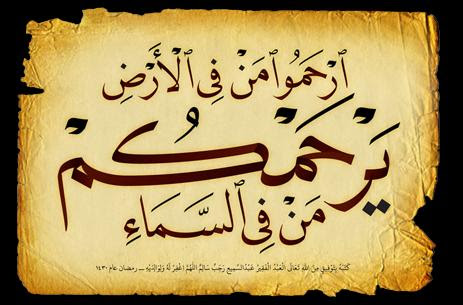 ٱرْحَمُوا۟ مَنْ فِى ٱلْأَرْضِ
يَرْحَمْكُمْ
مَنْ فِى ٱلسَّمَاءِ
كَتَبَهُ بِتَوْفِيقٍ مِنَ اللهِ تَعَالَى الْعَبْدُ الْفَقِيرُ عَبْدُالسَّمِيعِ رَجَبْ سَالِمْ اللَّهُمَّ اغْفِرْ لَهُ وَلِوَالِدَيْهِ ــ رمضان عام ١٤٣٠